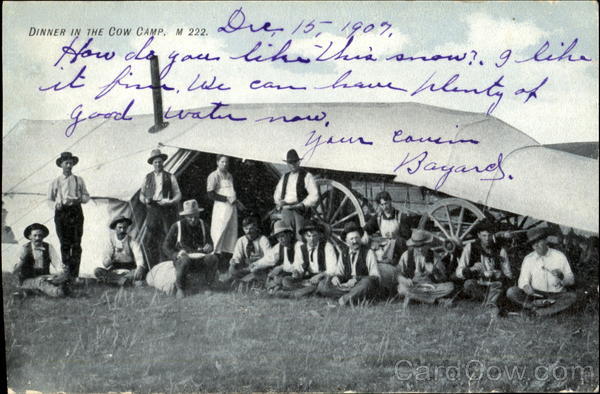 DINNER IN THE COW CAMP, M 222.
Dec. 15, 1907.
How do you like this snow?. I like
it fine. We can have plenty of
good water now.
Your cousin
Bayard.
CardCow.com